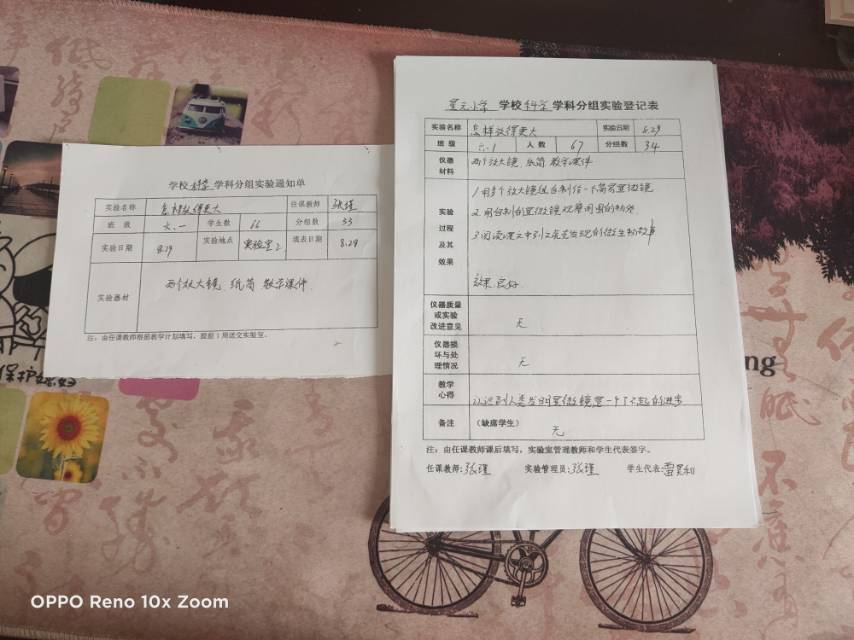 学校 科学 学科分组实验通知单
实验名称 怎样放得更大 任课教师 张瑾
班级 六.一 学生数 66 分组数 33
实验日期 8.29 实验地点 实验室2 填表日期 8.29
实验器材 两个放大镜 纸筒 教学课件.
注：由任课教师根据教学计划填写，提前1周送交实验室。
星元小学 学校 科学 学科分组实验登记表
实验名称 怎样放得更大 实验日期 8.29
班级 六.1 人数 67 分组数 34
仪器材料 两个放大镜.纸筒 教学课件
实验过程及其效果
1 用多个放大镜组自制作一个简易显微镜
2 用自制的显微镜观察周围的物体
3 阅读
效果.良好
仪器质量或实验改进意见 无
仪器损坏与处理情况 无
教学心得 认识到人类发明显微镜是一个了不起的进步
备注 (缺席学生) 无
注：由任课教师课后填写，实验室管理教师和学生代表签字。
任课教师:张瑾 实验管理员:张瑾 学生代表:雷昊和
保护
ng
OPPO Reno 10x Zoom